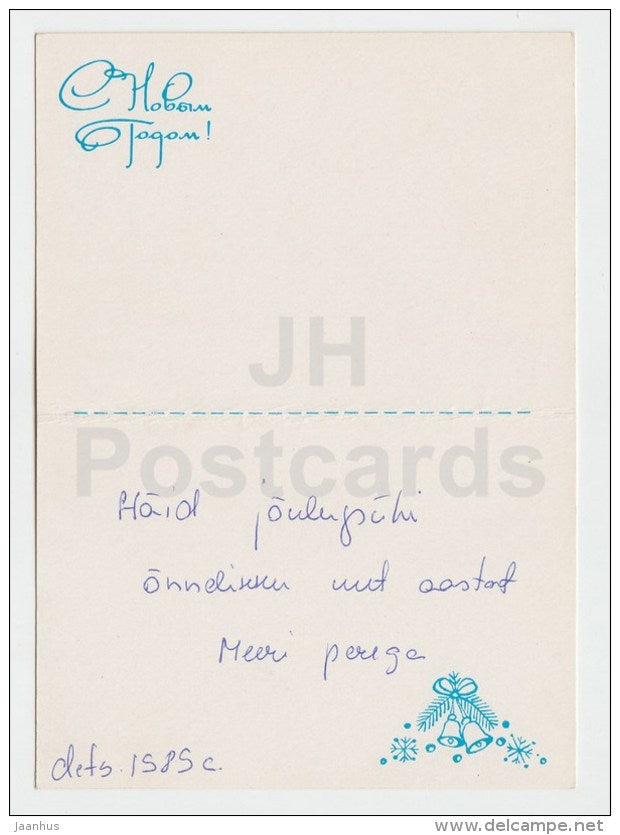 С Новым
Годом!
JH
Postcards
Häid jõulupühi
õnnelikku uut aastat
Meeri perega
dets. 1989 a.
jaanhus
www.delcampe.net